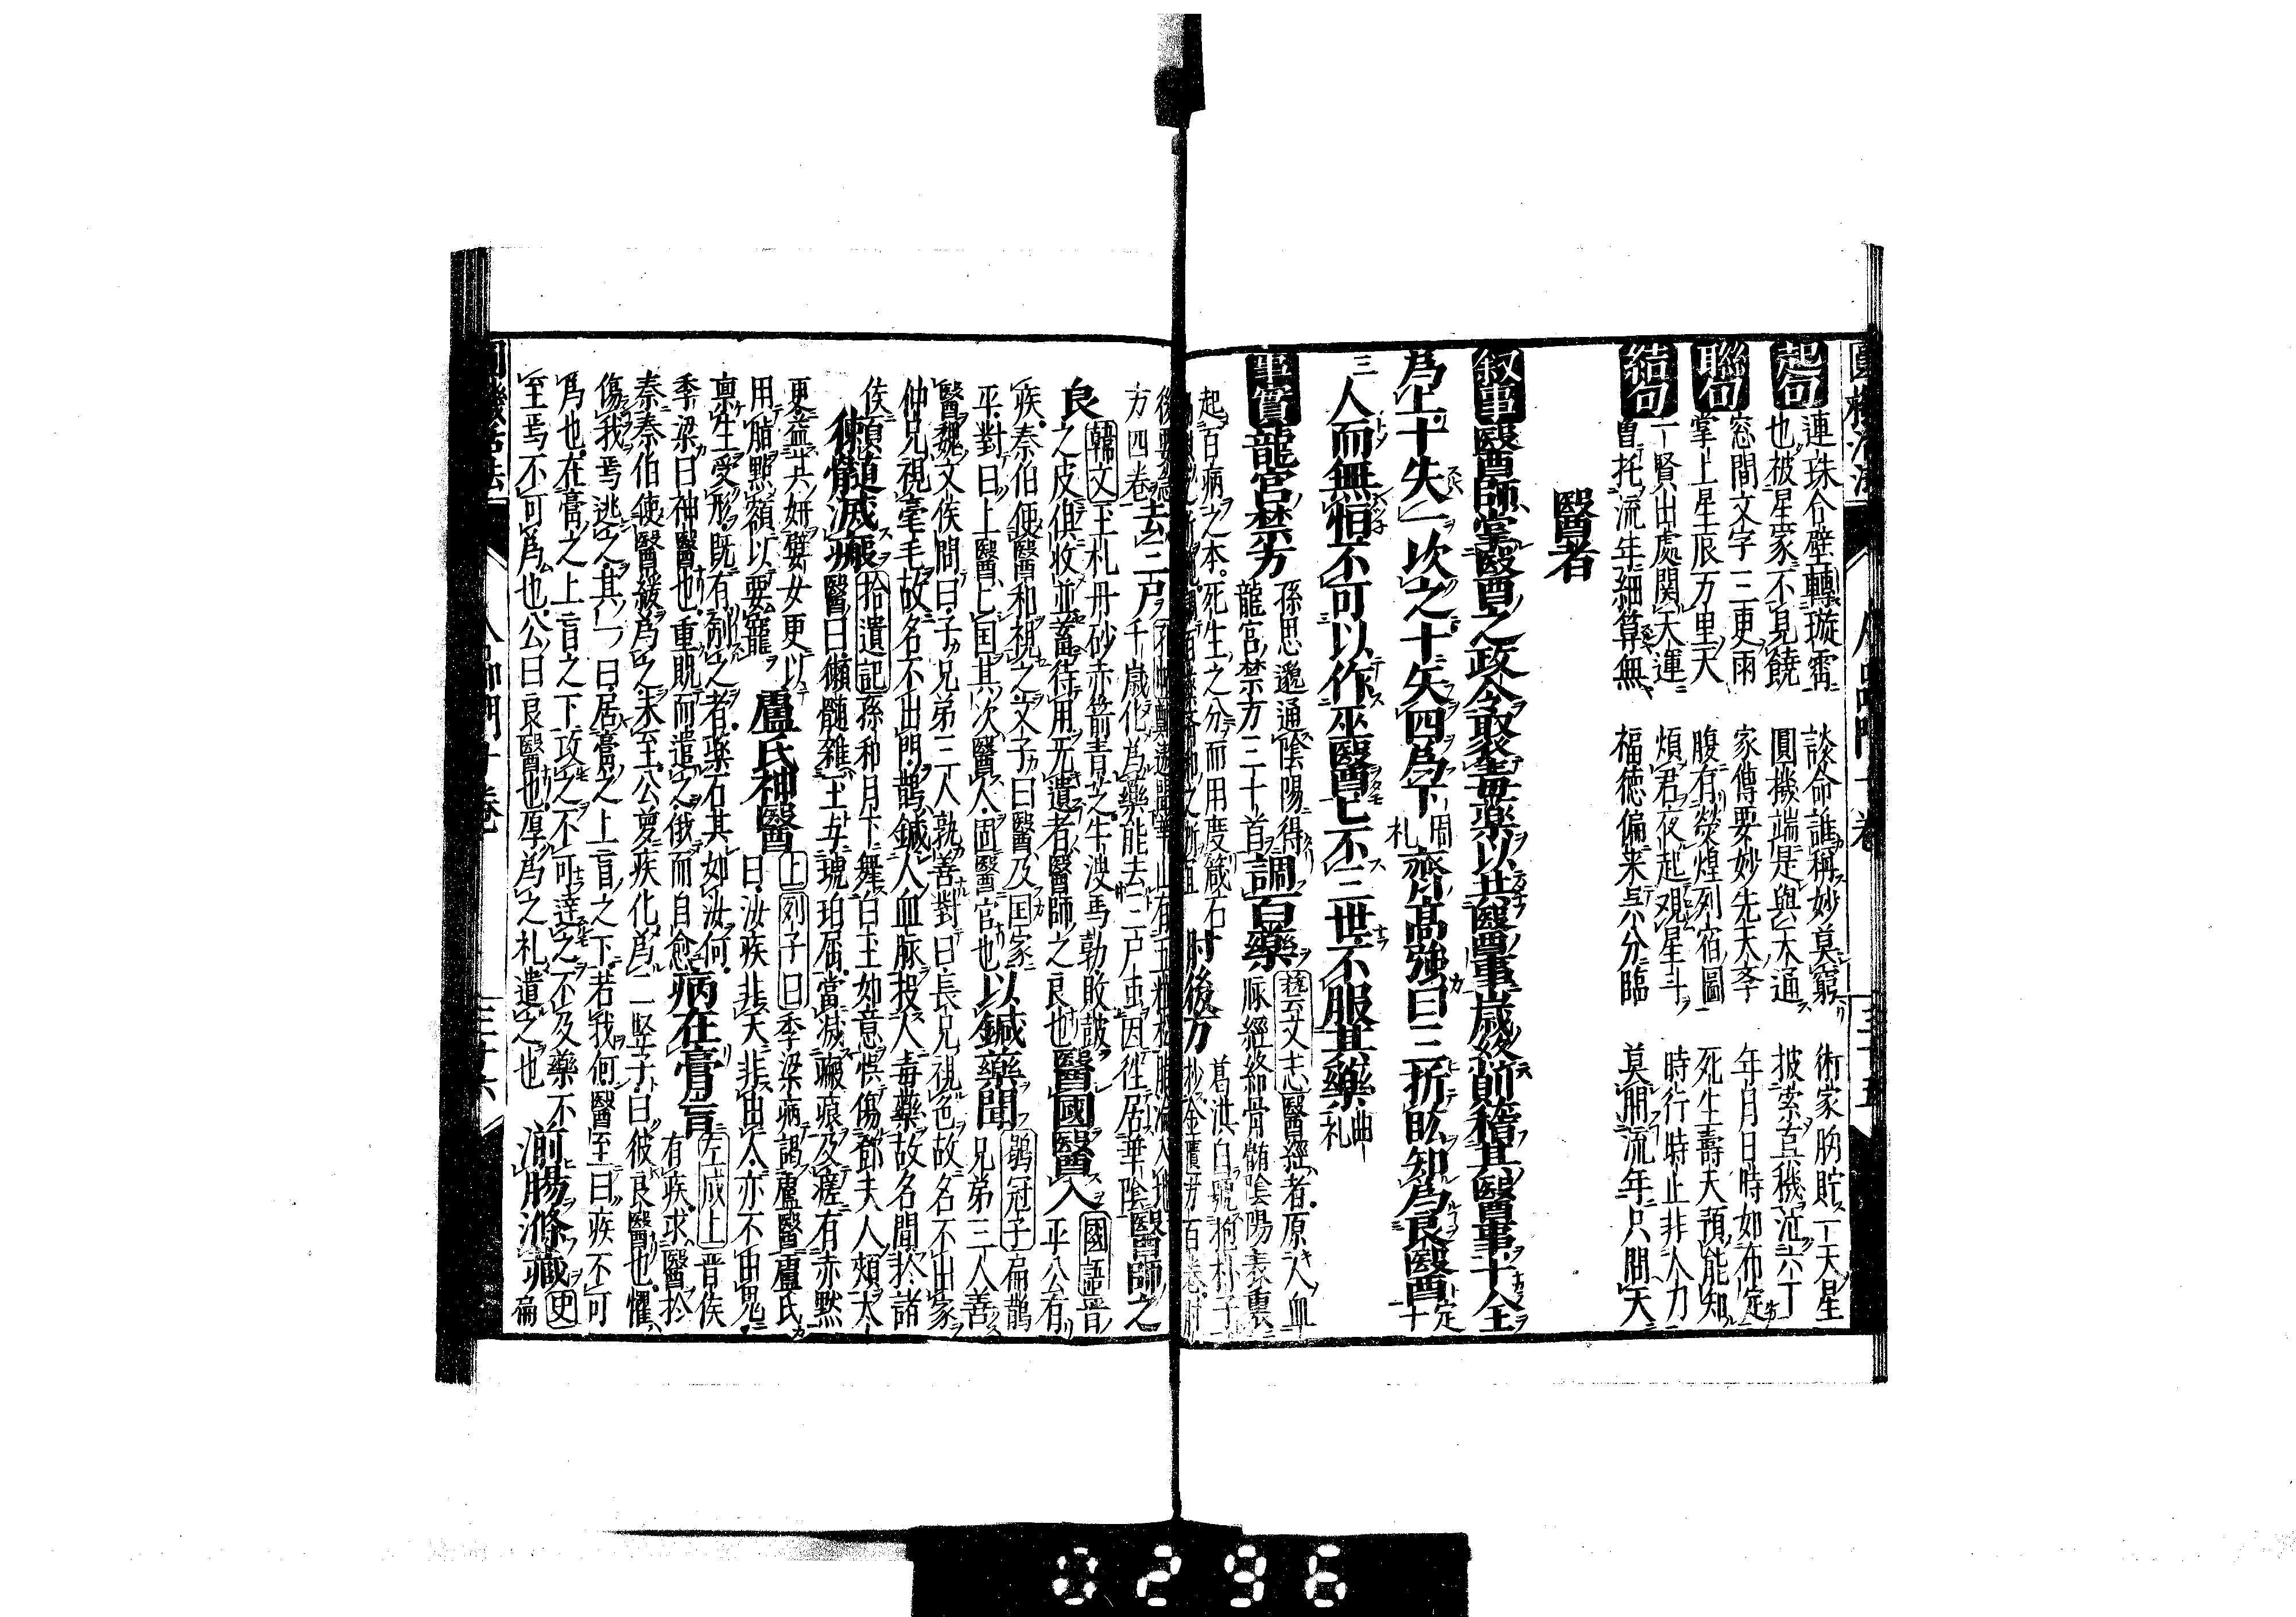 圓機活法 人品門十卷 三十五
起句 連珠合璧轉璇霄 談命誰稱妙莫窮 術家胸貯一天星
也被星家不見饒 圓機端是與天通 披索真機泣六丁
聯句 窓間文字三更雨 家傳要妙先天季 年月日時如布定
掌上星辰万里天 腹有熒煌列宿圖 死生壽夭預能知
結句 一賢出處関天運 煩君夜起観星斗 時行時止非人力
曽托流年細算無 福徳偏来与分臨 莫開流年只問天
醫者
叙事 醫師掌醫之政令聚毒藥以共醫事歳終節稽其醫事十全
爲上十失一次之十失四爲下 周札 齊高強曰三折肱知爲良醫 定十
三 人而無恒不可以作巫醫匕不三世不服其藥 曲礼
事實 龍宮禁方 孫思邈通陰陽得
龍宮禁方三十首 調百藥 藝文志醫經者原人血
脉經絡骨髄陰陽表裏
起百病之本死生之分而用度箴石
肘後方 葛洪自號抱朴子
抄金匱方百卷肘
後要急
方四卷 去三尸
千歳化爲藥能去三尸虫因往居華陰 醫師之
良 韓文玉札丹砂赤箭青芝牛溲馬勃敗鼓
之皮俱收並蓄待用无遺者醫師之良也 醫國醫人 國語晋
平公有
疾秦伯使醫和視之文子曰醫及国家
平對曰上醫匕国其次醫人固醫官也 以鍼藥聞 鶡冠子扁鵲
兄弟三人善
醫魏文侯問曰子兄弟三人孰善對曰長兄視色故名不出家
仲兄視毫毛故名不出門鵲鍼人血脉投人毒藥故名聞於諸
侯 獺髓滅瘢 拾遺記孫和月下舞白玉如意悞傷鄧夫人頬太
醫曰獺髓雜玉与琥珀屑當滅瘢痕及瘥有赤黙
更益其妍嬖女更以
用脂點頬以要寵 盧氏神醫 上列子曰季梁病謁盧醫盧氏
曰汝疾非天非由人亦不由鬼
禀生受形既有制之者藥石其如汝何
季梁曰神醫也重貺而遣之俄而自愈 病在膏肓 左成上晋侯
有疾求醫於
秦秦伯使醫緩爲之未至公夢疾化爲二竪子曰彼良醫也懼
傷我焉逃之其一曰居膏之上肓之下若我何醫至曰疾不可
爲也在膏之上肓之下攻之不可達之不及藥不
至焉不可爲也公曰良醫也厚爲之札遣之也 湔腸滌藏 史扁
三十六
0296